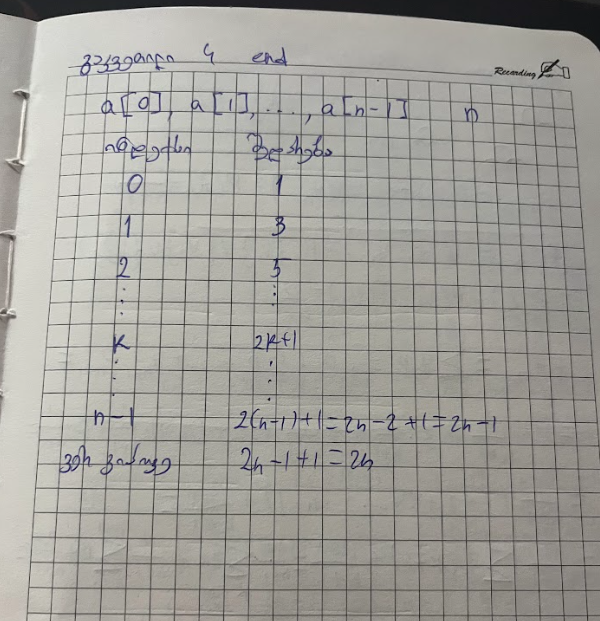 4 end
Recording
a[0], a[1], ..., a[n-1] n
ინდექსი შედარება
0 1
1 3
2 5
⋮ ⋮
k 2k+1
⋮ ⋮
n-1 2(n-1)+1=2n-2+1=2n-1
ვერ 2n-1+1=2n